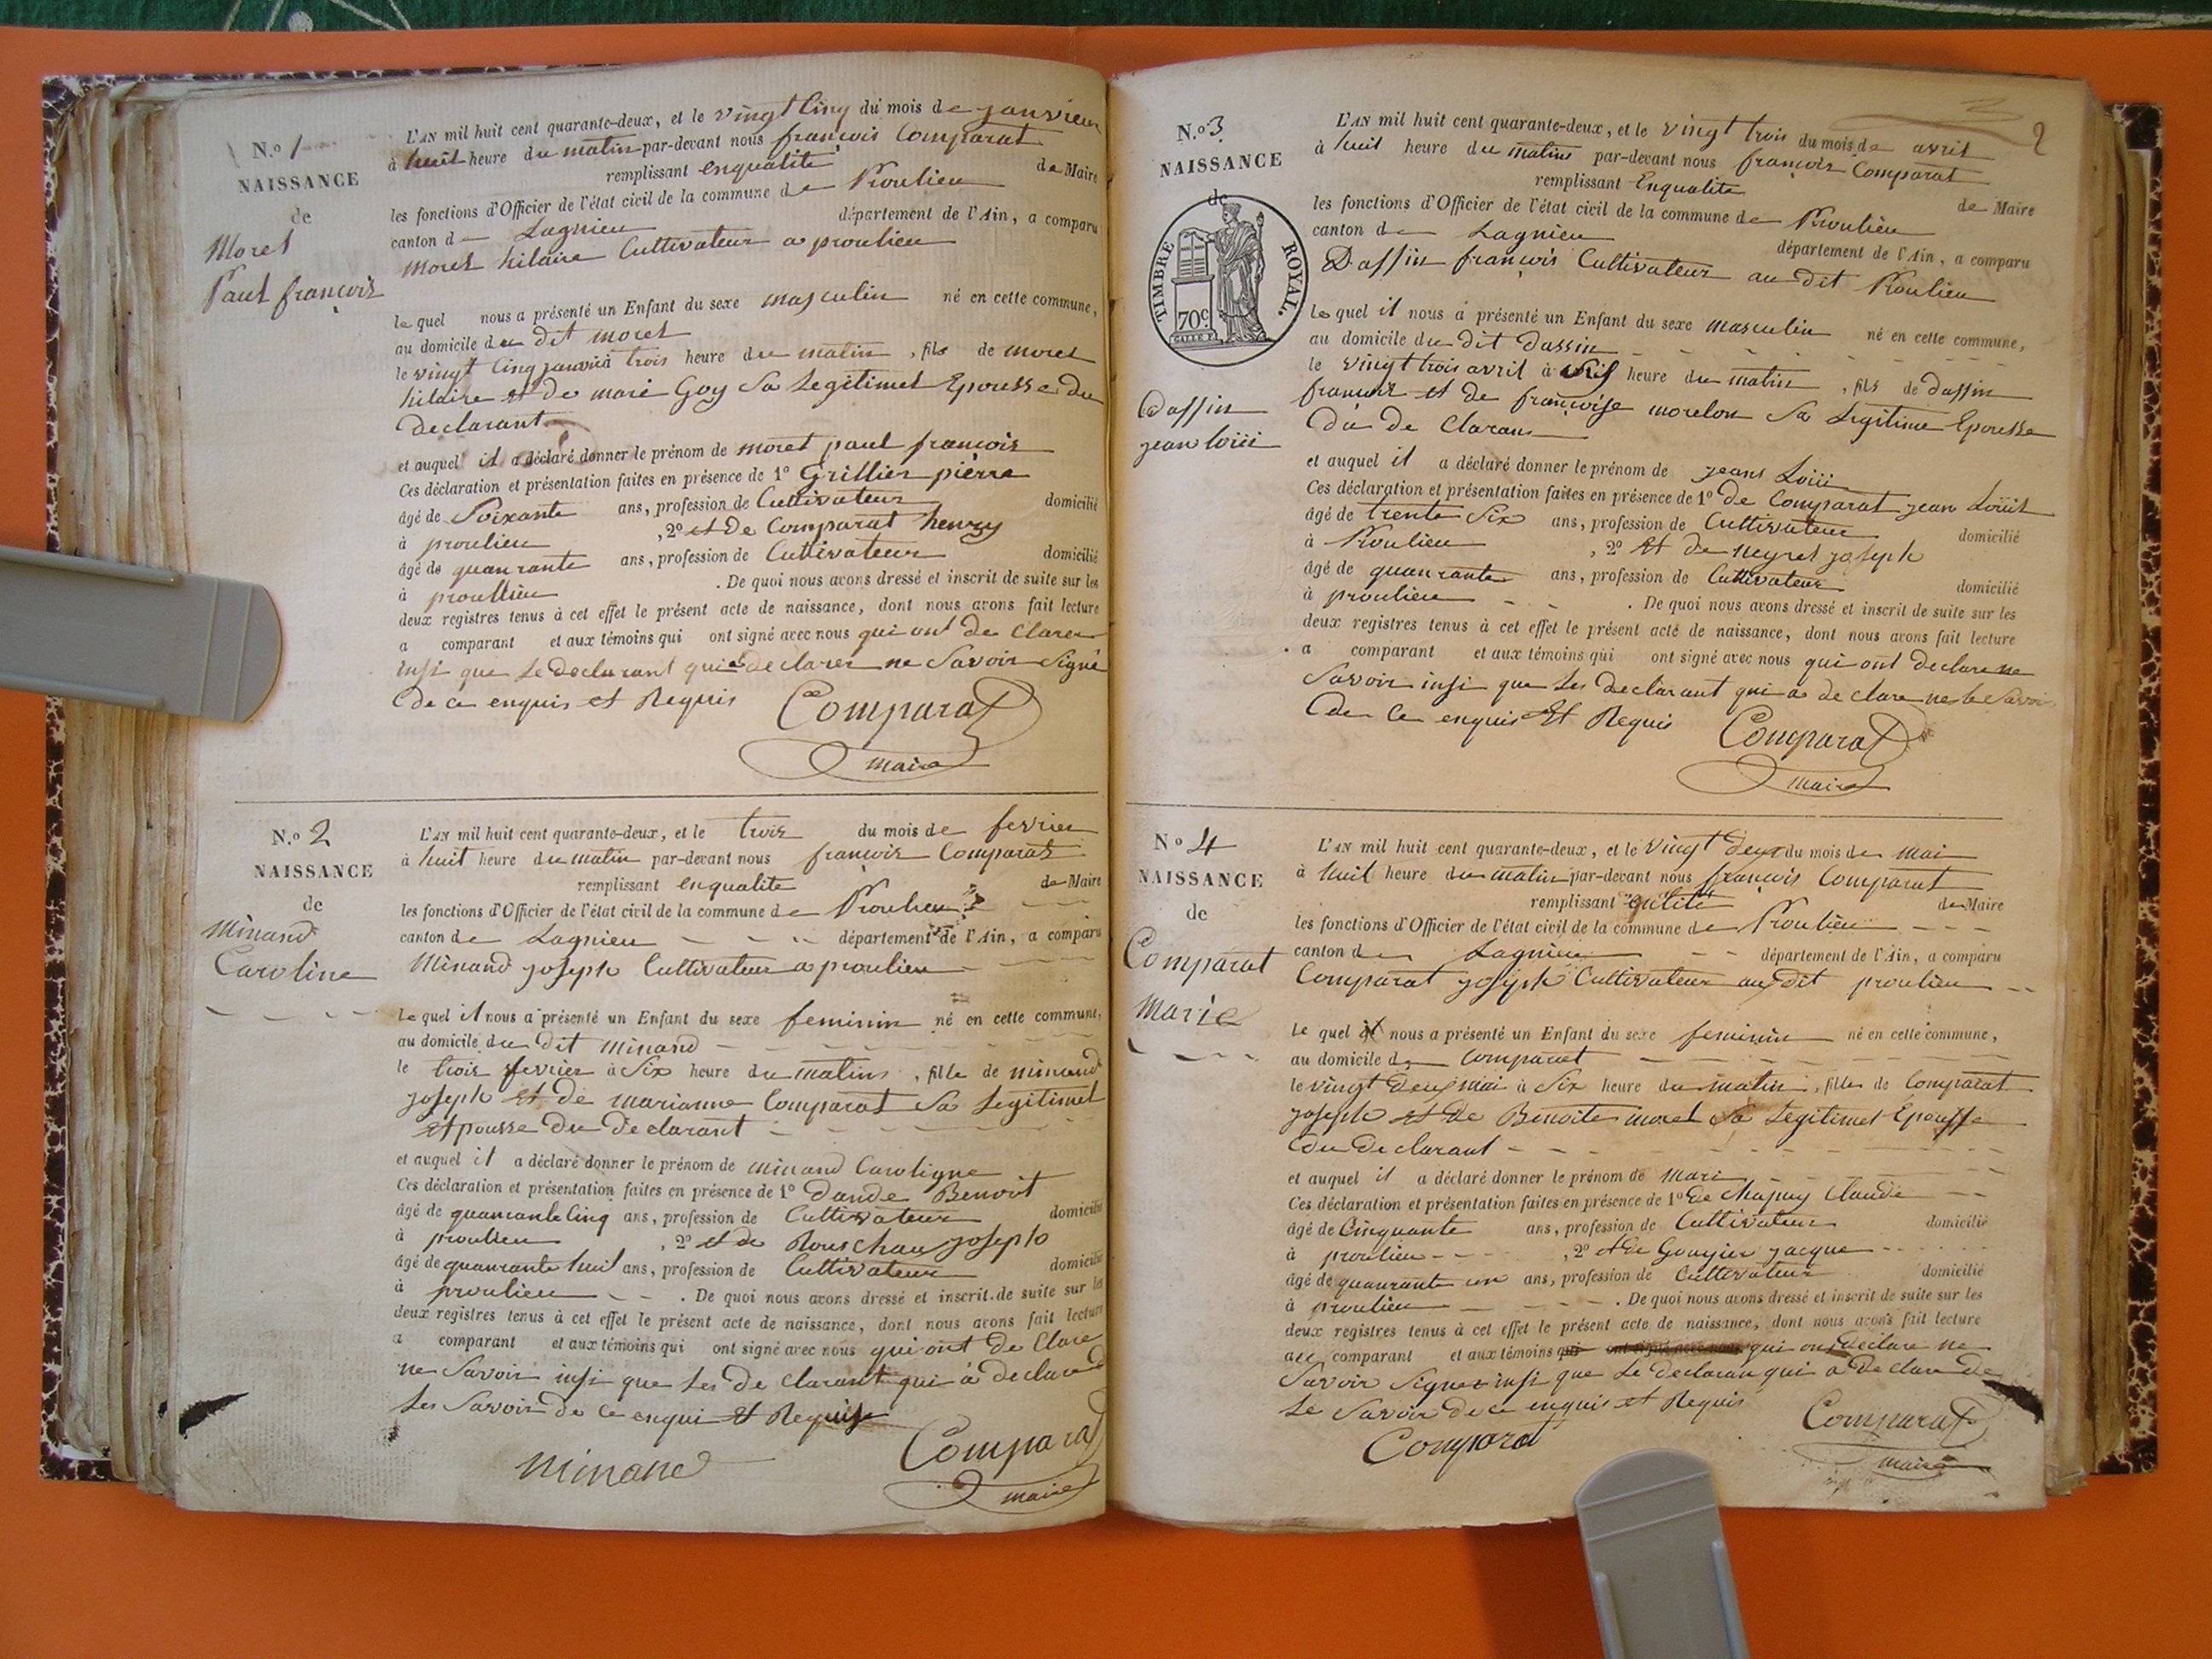 N.o 1
NAISSANCE
de
Moret
Paul françois
L'AN mil huit cent quarante-deux, et le vingt Cinq du mois de janvier
à huit heure du matin par-devant nous françois Comparat
remplissant enqualité de Maire
les fonctions d'Officier de l'état civil de la commune de Proulieu
canton de Lagnieu département de l'Ain, a comparu
moret hilaire Cultivateur a proulieu
le quel nous a présenté un Enfant du sexe masculin né en cette commune,
au domicile du dit moret
le vingt Cinq janvié à trois heure du matin, fils de moret
hilaire et de marie Goy Sa Legitimet Epousse du
declarant
et auquel il a déclaré donner le prénom de moret paul francois
Ces déclaration et présentation faites en présence de 1o Grillier pierre
âgé de Soixante ans, profession de Cultivateur domicilié
à proulieu, 2o et de Comparat henry
âgé de quanrante ans, profession de Cultivateur domicilié
à proullieu. De quoi nous avons dressé et inscrit de suite sur les
deux registres tenus à cet effet le présent acte de naissance, dont nous avons fait lecture
a comparant et aux témoins qui ont signé avec nous qui ont de clarer
insi que Le declarant qui a declarer ne Savoir Signé
de ce enquis et Requis Comparat
maire
N.o 2
NAISSANCE
de
Minand
Caroline
L'AN mil huit cent quarante-deux, et le trois du mois de fevrier
à huit heure du matin par-devant nous françois Comparat
remplissant enqualite de Maire
les fonctions d'Officier de l'état civil de la commune de Proulieu
canton de Lagnieu département de l'Ain, a comparu
Minand joseph Cultivateur a proulieu
Le quel il nous a présenté un Enfant du sexe feminin né en cette commune,
au domicile du dit minand
le trois fevrier à Six heure du matins, fille de minand
joseph et de marianne Comparat Sa Legitimet
Epousse du declarant
et auquel il a déclaré donner le prénom de minand Caroligne
Ces déclaration et présentation faites en présence de 1o dande Benoit
âgé de quanrante Cinq ans, profession de Cultivateur domicilié
à proulieu, 2o et de joseph
âgé de quanrante huit ans, profession de Cultivateur domicilié
à proulieu. De quoi nous avons dressé et inscrit de suite sur les
deux registres tenus à cet effet le présent acte de naissance, dont nous avons fait lecture
a comparant et aux témoins qui ont signé avec nous qui ont de Clare
ne Savoir insi que Les de clarant qui à declare
Les Savoir de ce enqui et Requise
minand Comparat
maire
2
N.o 3
NAISSANCE
de
TIMBRE ROYAL.
70c.
Dassin
jean loiii
L'AN mil huit cent quarante-deux, et le vingt trois du mois de avril
à huit heure du matins par-devant nous françois Comparat
remplissant Enqualite de Maire
les fonctions d'Officier de l'état civil de la commune de Proulieu
canton de Lagnieu département de l'Ain, a comparu
Dassin françois Cultivateur au dit Proulieu
Le quel il nous a présenté un Enfant du sexe masculin né en cette commune,
au domicile du dit dassin
le vingt trois avril à heure du matin, fils de dassin
francois et de françoise morelon Sa Legitime Epousse
du de Clarans
et auquel il a déclaré donner le prénom de jeans Loiii
Ces déclaration et présentation faites en présence de 1o de Comparat jean Louit
âgé de trente Six ans, profession de Cultivateur domicilié
à Proulieu, 2o Et de neyret joseph
âgé de quanrante ans, profession de Cultivateur domicilié
à proulieu. De quoi nous avons dressé et inscrit de suite sur les
deux registres tenus à cet effet le présent acte de naissance, dont nous avons fait lecture
a comparant et aux témoins qui ont signé avec nous qui ont declare ne
Savoir insi que Les declarant qui a de clare ne le Savoir
de Ce enquis Et Requis Comparat
maire
No 4
NAISSANCE
de
Comparat
marie
L'AN mil huit cent quarante-deux, et le vingt deux du mois de mai
à huit heure du matin par-devant nous françois Comparat
remplissant de Maire
les fonctions d'Officier de l'état civil de la commune de Proulieu
canton de Lagnieu département de l'Ain, a comparu
Comparat joseph Cultivateur au dit proulieu
Le quel il nous a présenté un Enfant du sexe feminin né en cette commune,
au domicile de Comparat
le vingt deux mai à Six heure du matin, fille de Comparat
joseph et de Benoite moret Sa Legitimet Epousse
du de clarant
et auquel il a déclaré donner le prénom de Mari
Ces déclaration et présentation faites en présence de 1o de Chapuy Claude
âgé de Cinquante ans, profession de Cultivateur domicilié
à proulieu, 2o et de Goujier jacque
âgé de quanrante un ans, profession de Cultivateur domicilié
à proulieu. De quoi nous avons dressé et inscrit de suite sur les
deux registres tenus à cet effet le présent acte de naissance, dont nous avons fait lecture
au comparant et aux témoins qui ont signé avec nous qui ont déclare ne
Savoir Signez insi que Le declaran qui a declare de
Le Savoir de ce enquis et Requis
Comparat Comparat
maire